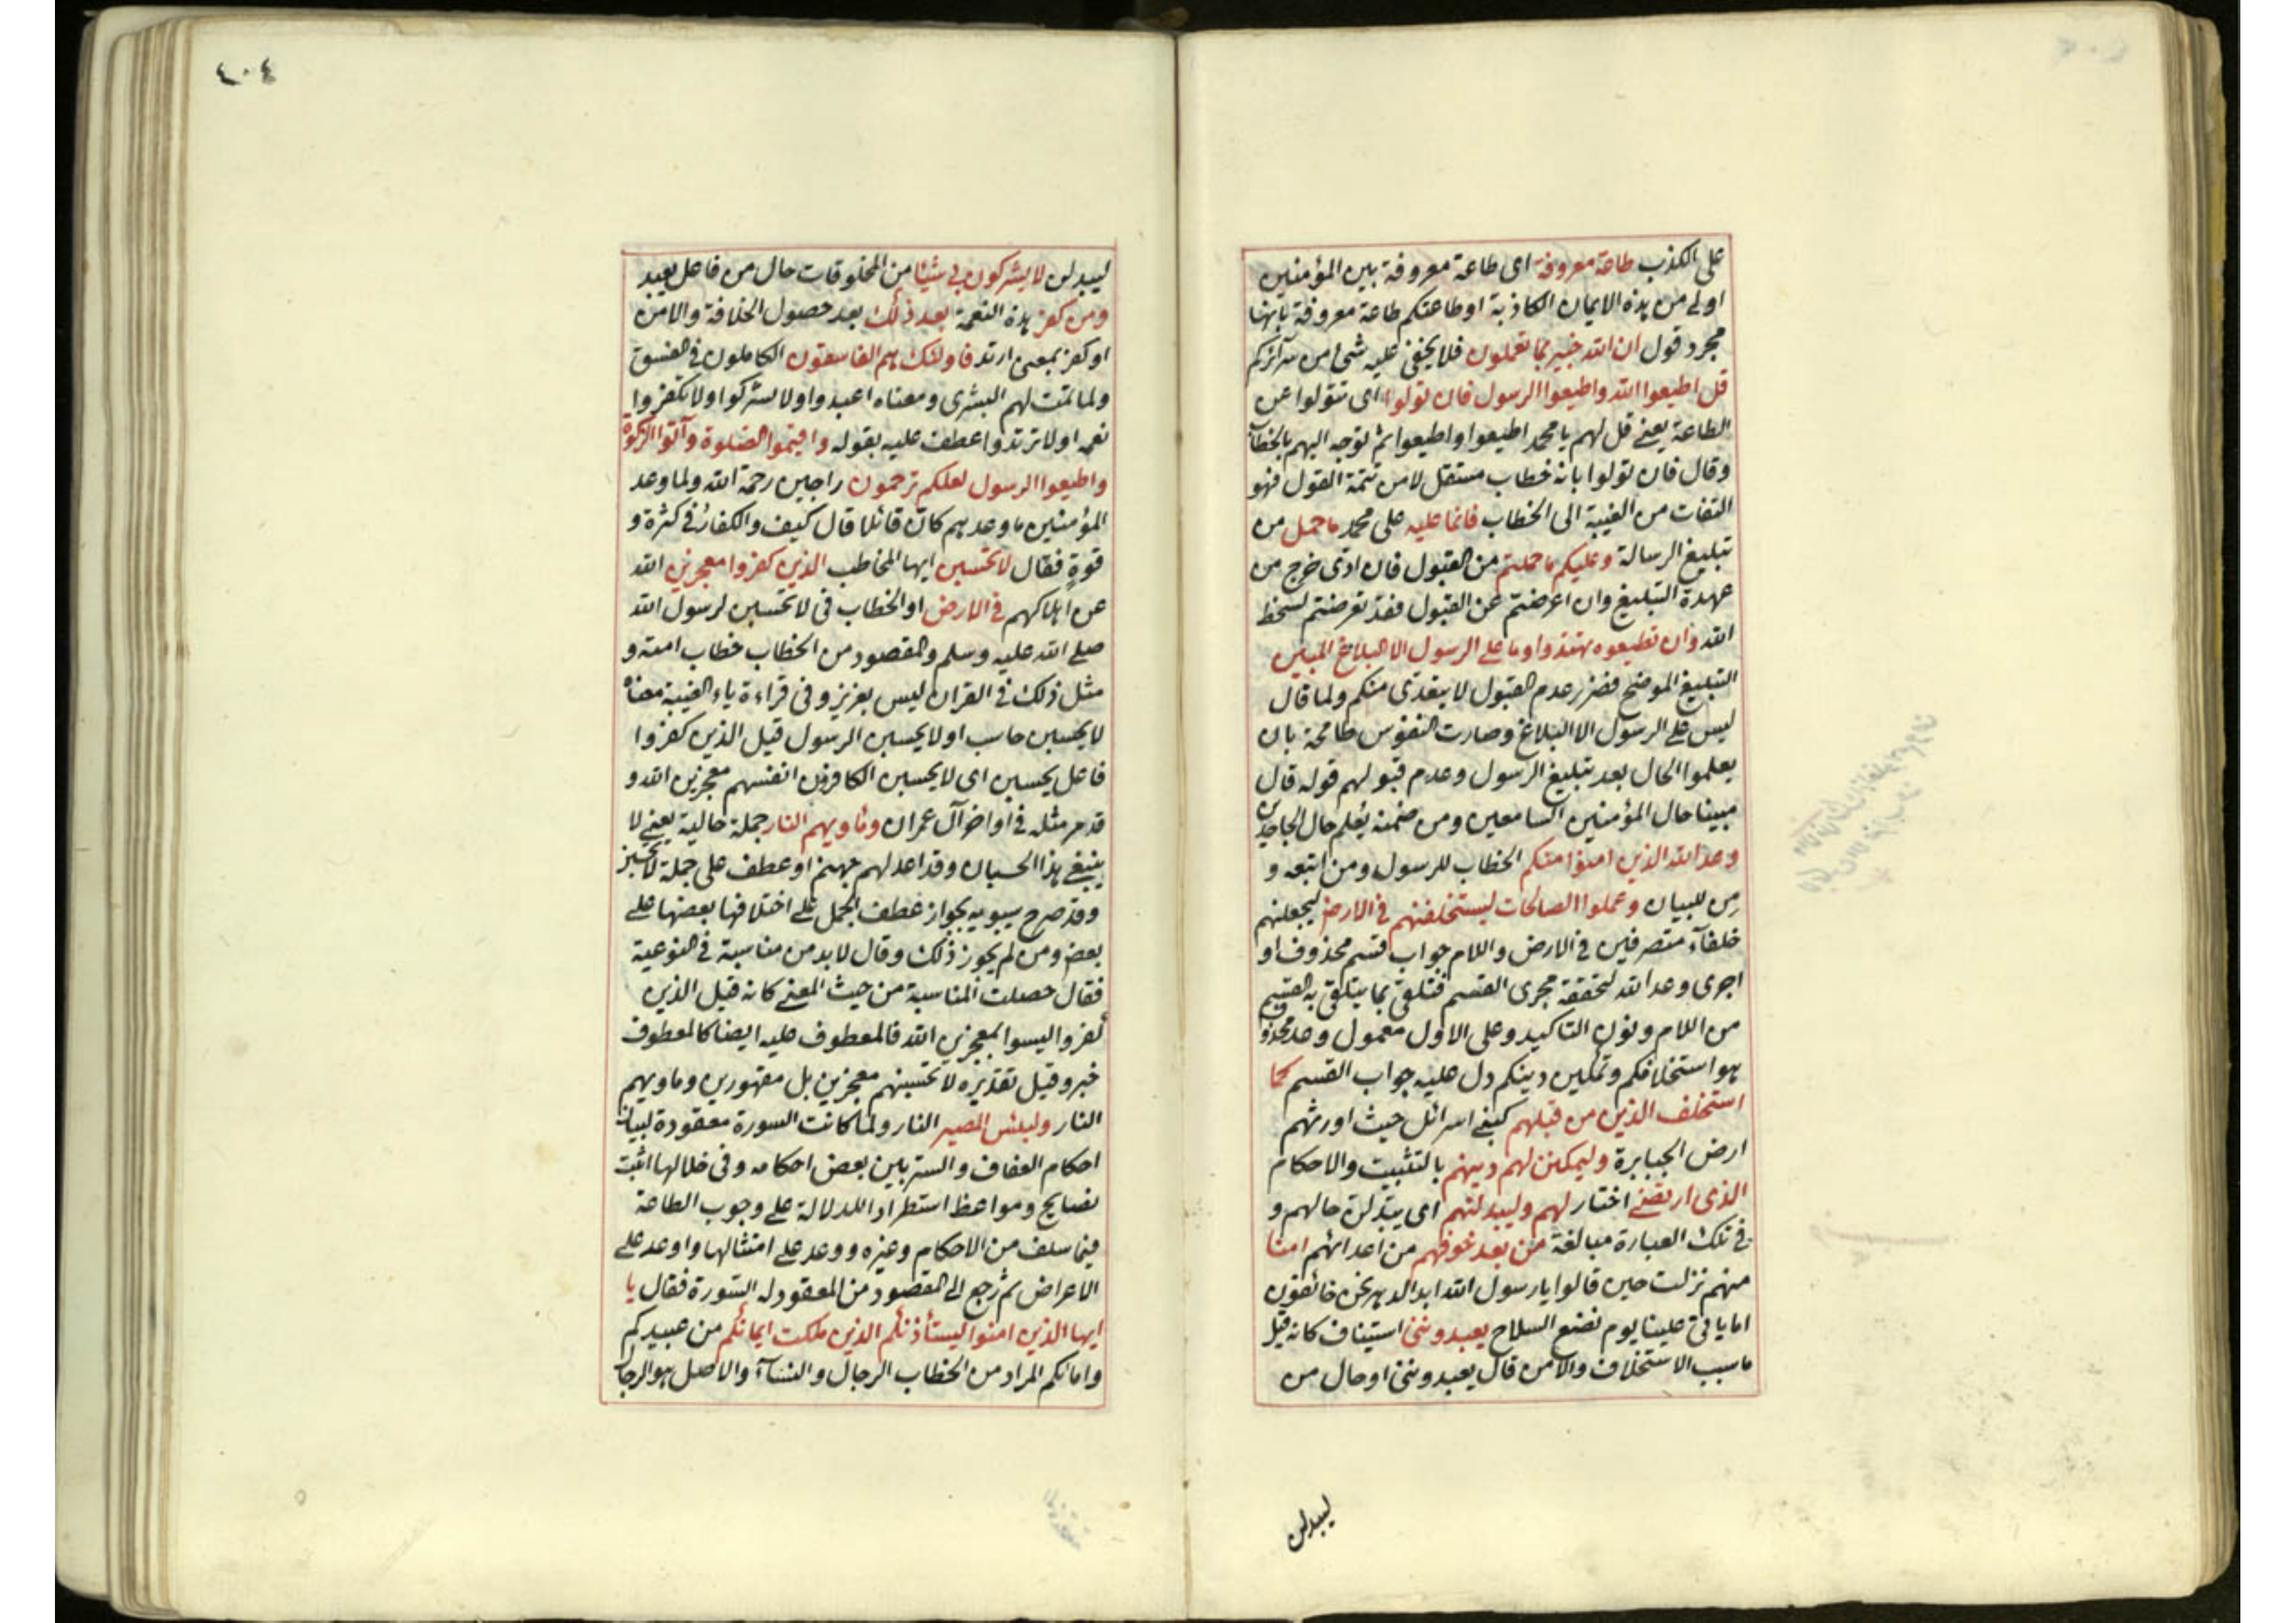 على الكذب طاعة معروفة اى طاعة معروفة بين المؤمنين
اولى من هذه الايمان الكاذبة او طاعتكم طاعة معروفة بانها
مجرد قول ان الله خبير بما تعملون فلا يخفى عليه شئ من سرائركم
قل اطيعوا الله واطيعوا الرسول فان تولوا اى تتولوا عن
الطاعة يعنى قل لهم يا محمد اطيعوا واطيعوا ثم توجه اليهم بالخطاب
وقال فان تولوا بانه خطاب مستقل لا من تتمة القول فهو
التفات من الغيبة الى الخطاب فانما عليه على محمد ما حمل من
تبليغ الرسالة وعليكم ما حملتم من القبول فان ادى خرج من
عهدة التبليغ وان اعرضتم عن القبول فقد تعرضتم لسخط
الله وان تطيعوه تهتدوا وما على الرسول الا البلاغ المبين
التبليغ الموضح فضرر عدم القبول لا يتعدى منكم ولما قال
ليس على الرسول الا البلاغ وصارت النفوس طامحة بان
يعلموا الحال بعد تبليغ الرسول وعدم قبولهم قوله قال
مبينا حال المؤمنين السامعين ومن ضمنه يعلم حال الجاحدين
وعد الله الذين امنوا منكم الخطاب للرسول ومن اتبعه و
من للبيان وعملوا الصالحات ليستخلفنهم فى الارض ليجعلنهم
خلفآء متصرفين فى الارض واللام جواب قسم محذوف او
اجرى وعد الله لتحققه مجرى القسم فتلقى بما يتلقى به القسم
من اللام ونون التاكيد وعلى الاول معمول وعد محذوف
هو استخلافكم وتمكين دينكم دل عليه جواب القسم كما
استخلف الذين من قبلهم كبنى اسرائل حيث اورثهم
ارض الجبابرة وليمكنن لهم دينهم بالتثبيت والاحكام
الذى ارتضى اختار لهم وليبدلنهم اى يبدلن حالهم و
فى تلك العبارة مبالغة من بعد خوفهم من اعدائهم امنا
منهم نزلت حين قالوا يا رسول الله ابد الدهر نحن خائفون
اما ياتى علينا يوم نضع السلاح يعبدوننى استيناف كانه قيل
ما سبب الاستخلاف والامن قال يعبدوننى او حال من
ليبدلن
٤٠٤
ليبدلن لا يشركون بى شيئا من المخلوقات حال من فاعل يعبد
ومن كفر هذه النعمة بعد ذلك بعد حصول الخلافة والامن
او كفر بمعنى ارتد فاولئك هم الفاسقون الكاملون فى الفسق
ولما تمت لهم البشرى ومعناه اعبدوا ولا تشركوا ولا تكفروا
نعمه او لا ترتدوا عطف عليه بقوله واقيموا الصلوة وآتوا الزكوة
واطيعوا الرسول لعلكم ترحمون راجين رحمة الله ولما وعد
المؤمنين ما وعدهم كان قائلا قال كيف والكفار فى كثرة و
قوة فقال لا تحسبن ايها المخاطب الذين كفروا معجزين الله
عن اهلاكهم فى الارض او الخطاب فى لا تحسبن لرسول الله
صلى الله عليه وسلم والمقصود من الخطاب خطاب امته و
مثل ذلك فى القران ليس بعزيز وفى قراءة ياء الغيبة معناه
لا يحسبن حاسب او لا يحسبن الرسول قيل الذين كفروا
فاعل يحسبن اى لا يحسبن الكافرون انفسهم معجزين الله و
قد مر مثله فى اواخر آل عمران وماويهم النار جملة حالية يعنى لا
ينبغى هذا الحسبان وقد اعد لهم جهنم او عطف على جملة لا تحسبن
وقد صرح سيبويه بجواز عطف الجمل على اختلافها بعضها على
بعض ومن لم يجوز ذلك وقال لا بد من مناسبة فى النوعية
فقال حصلت المناسبة من حيث المعنى كانه قيل الذين
كفروا ليسوا بمعجزين الله فالمعطوف عليه ايضا كالمعطوف
خبر وقيل تقديره لا تحسبنهم معجزين بل مقهورين وماويهم
النار ولبئس المصير النار ولما كانت السورة معقودة لبيان
احكام العفاف والستر بين بعض احكامه وفى خلالها اثبت
نصايح ومواعظ استطرادا للدلالة على وجوب الطاعة
فيما سلف من الاحكام وغيره ووعد على امتثالها واوعد على
الاعراض ثم رجع الى المقصود من المعقود له السورة فقال يا
ايها الذين امنوا ليستأذنكم الذين ملكت ايمانكم من عبيدكم
وامائكم المراد من الخطاب الرجال والنسآء والاصل هو الرجال